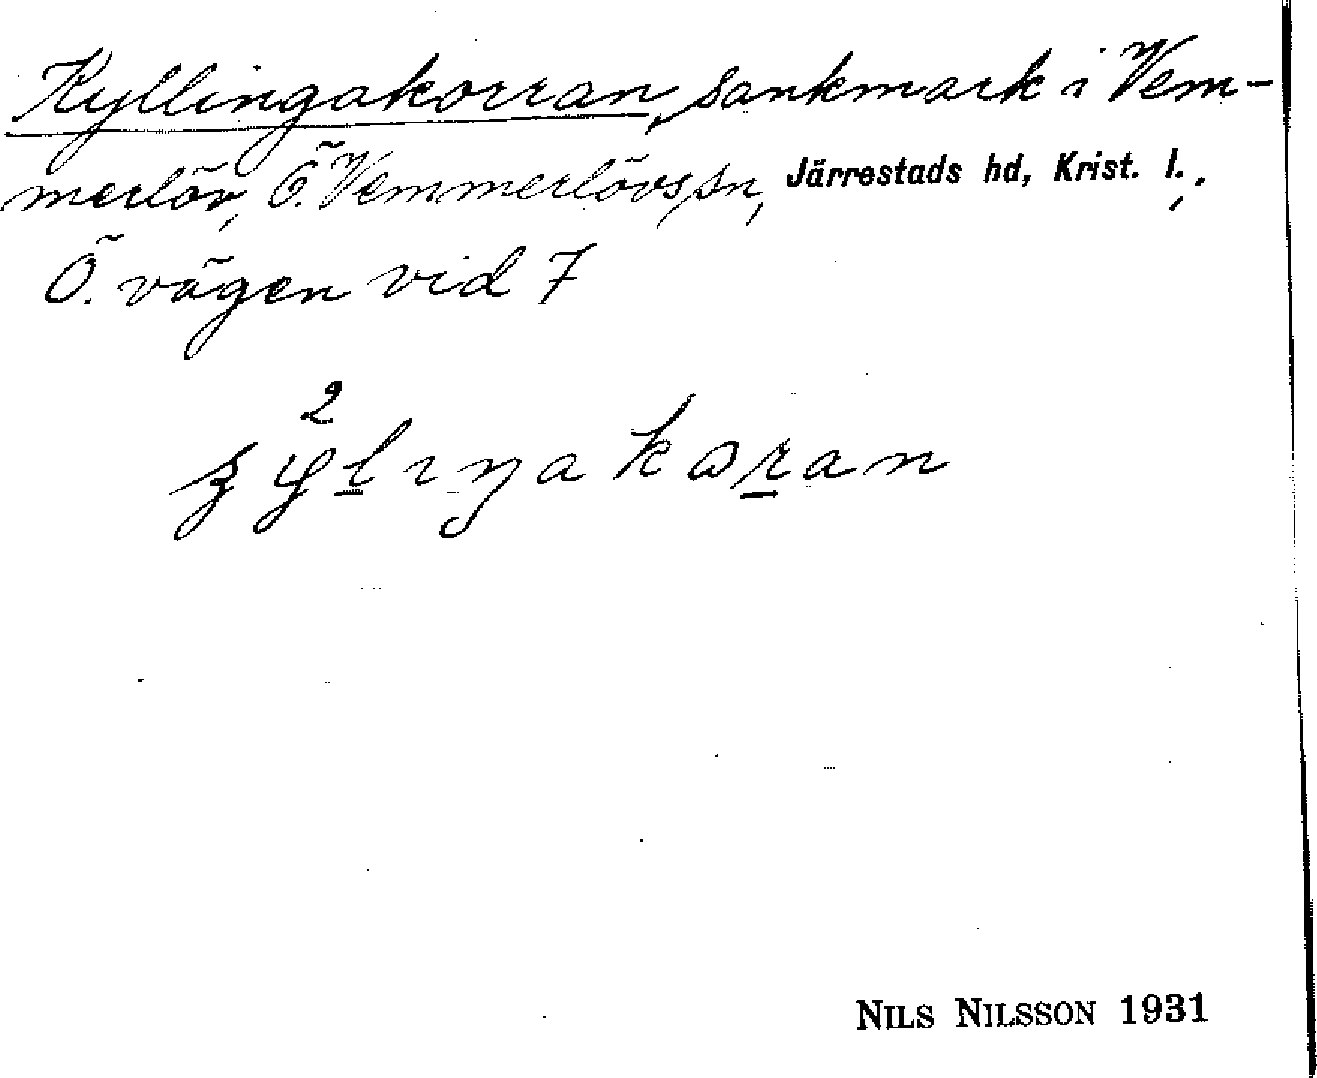 Kyllingakorran, sankmark i Vem-
merlöv, Ö. Vemmerlövs sn, Järrestads hd, Krist. l.,
Ö. vägen vid 7
2
NILS NILSSON 1931